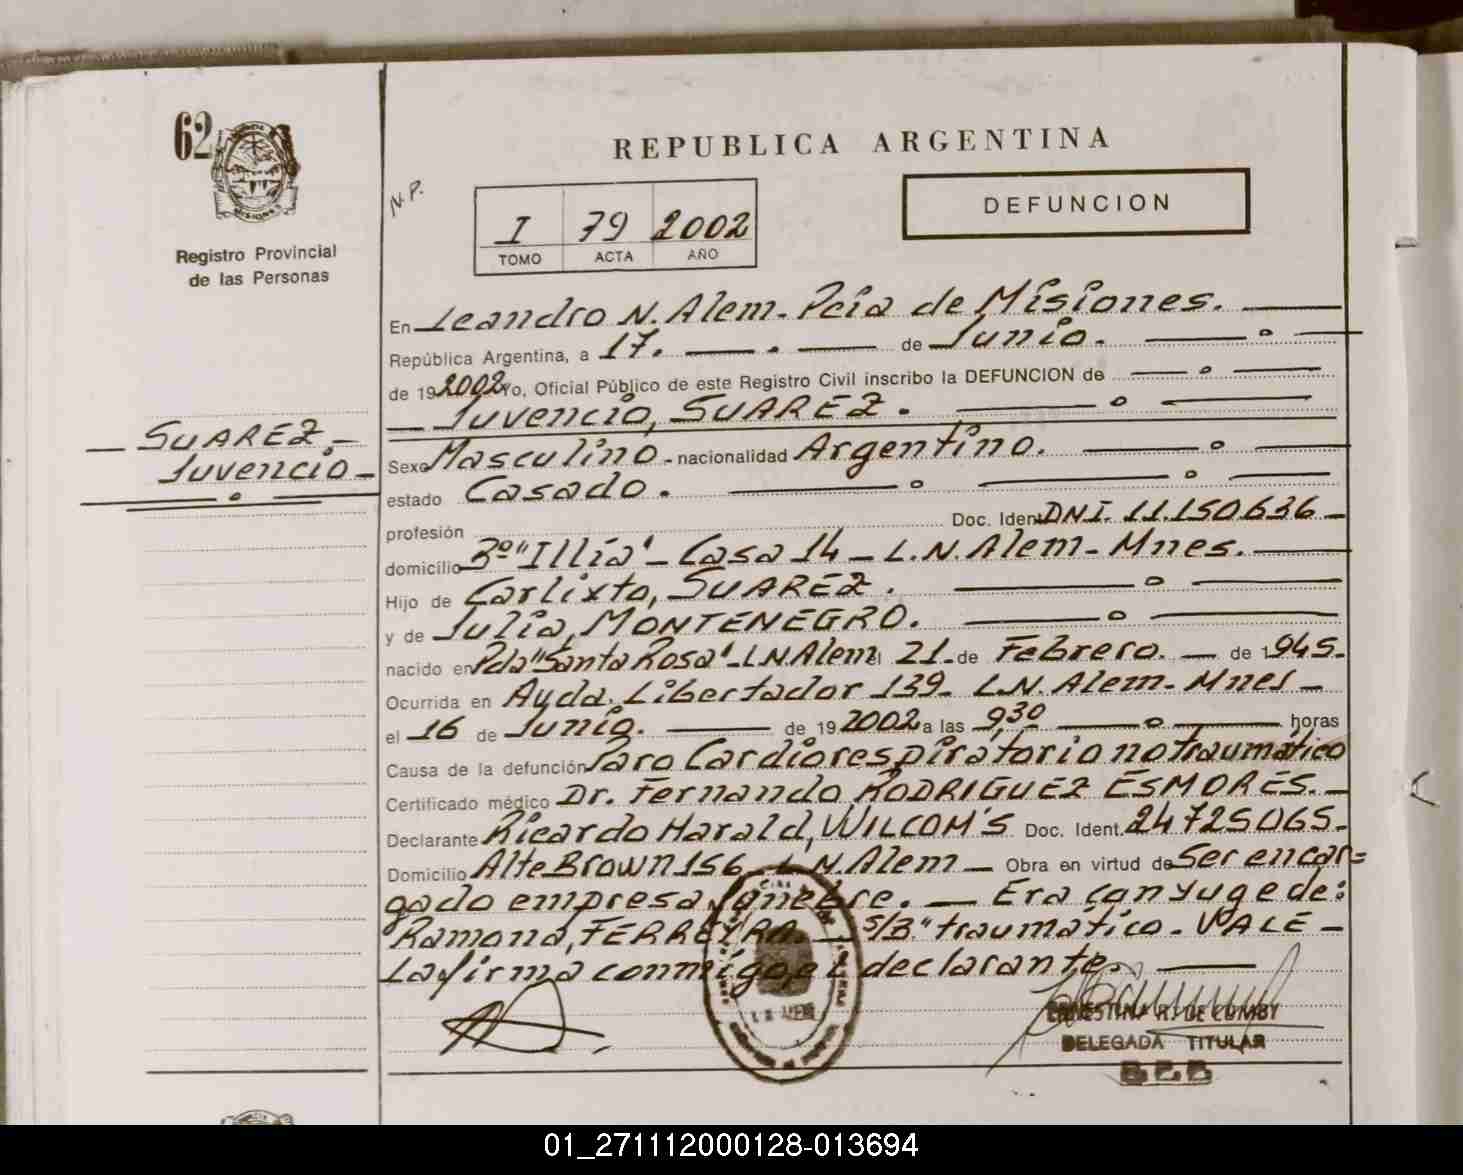 62
MISIONES
Registro Provincial
de las Personas
N.P.
REPUBLICA ARGENTINA
I 79 2002
TOMO ACTA AÑO
DEFUNCION
En Leandro N. Alem. Pcia de Misiones.
República Argentina, a 17. de Junio.
de 192002 Yo, Oficial Público de este Registro Civil inscribo la DEFUNCION de
Juvencio, SUAREZ.
SUAREZ
Juvencio
Sexo Masculino - nacionalidad Argentino.
estado Casado.
profesión Doc. Ident DNI. 11.150.636
domicilio Bº "Illia" - Casa 14 - L.N. Alem - Mnes.
Hijo de Carlixto, SUAREZ.
y de Julia, MONTENEGRO.
nacido en Pda "Santa Rosa" - L.N Alem el 21 de Febrero. de 1945.
Ocurrida en Avda. Libertador 139 - L.N. Alem - Mnes
el 16 de Junio. de 19 2002 a las 930 horas
Causa de la defunción Paro Cardiorespiratorio no traumático
Certificado médico Dr. Fernando, RODRIGUEZ ESMORES.
Declarante Ricardo Harald, WILCOM'S Doc. Ident. 24725065
Domicilio Alte Brown 156 L.N. Alem - Obra en virtud de Ser encar=
gado empresa funebre. - Era conyuge de:
Ramona, FERREYRA. - S/B. "traumático - VALE -
La firma conmigo, el declarante.
ERNESTINA R. DE
DELEGADA TITULAR
01_271112000128-013694